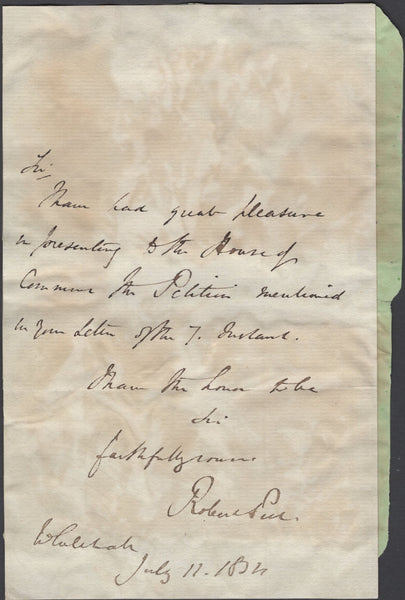 Sir,
I have had great pleasure
in presenting to the House of
Commons the Petition mentioned
in your Letter of the 7. Instant.
I have the honor to be
Sir
faithfully yours
Robert Peel.
Whitehall
July 11. 18